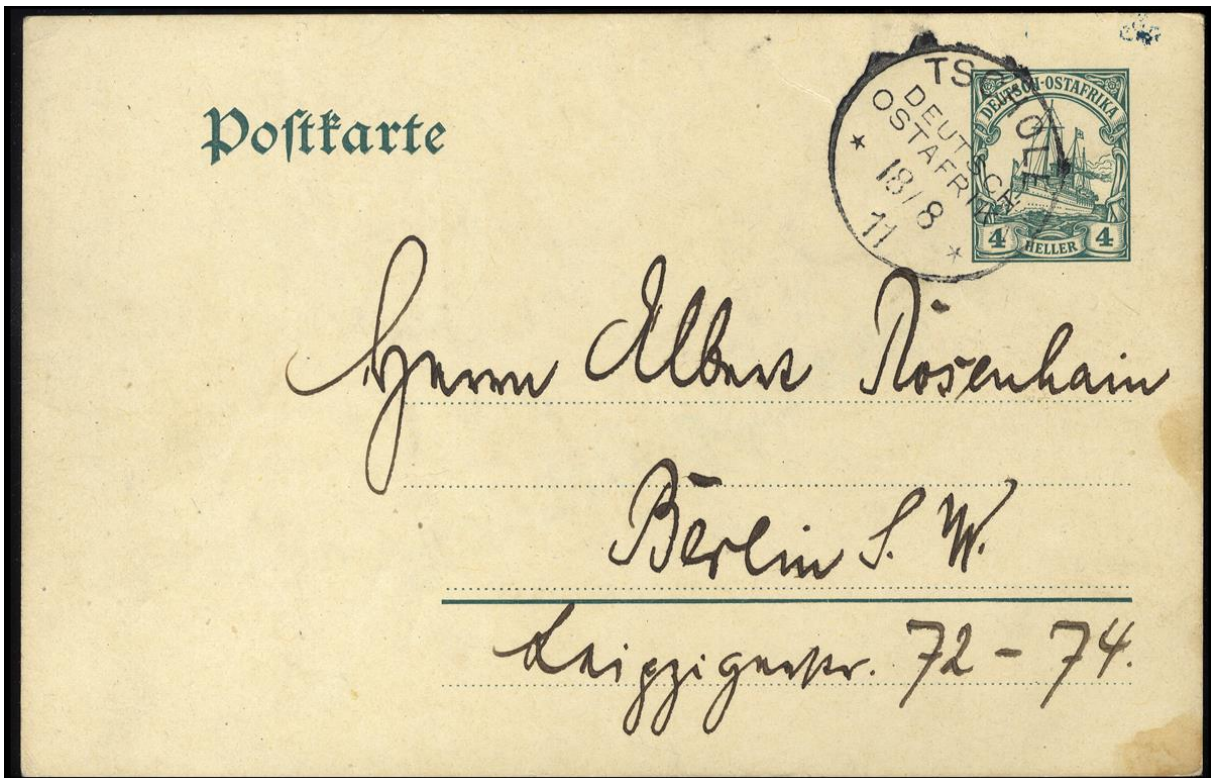 Postkarte
TSCHOLE
DEUTSCH-
OSTAFRIKA
* 18/8 *
11
DEUTSCH-OSTAFRIKA
4 HELLER 4
Herrn Albert Rosenhain
Berlin S. W.
Leipzigerstr. 72 - 74.